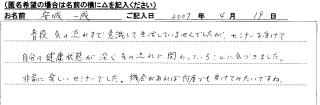 (匿名希望の場合は名前の横に△を記入ください)
お名前 安城 一成 ご記入日 2007年 4月 19日
普段 気の流れまで意識して生活していませんでしたが、セミナーを受けて
自分の健康状態が深く気の流れに関わっていることに気づきました。
非常に楽しいセミナーでした。機会があれば何度でも受けてみたいですね。